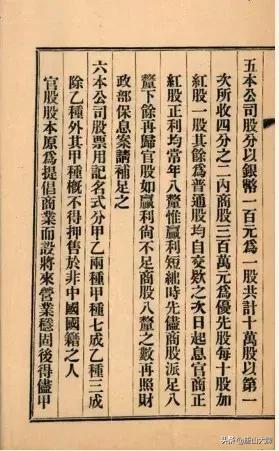 五本公司股分以銀幣一百元爲一股共計十萬股以第一
次所收四分之二內商股三百萬元爲優先股每十股加
紅股一股其餘爲普通股均自交欵之次日起息官商正
紅股正利均常年八釐惟贏利短絀時先儘商股派足八
釐下餘再歸官股如贏利尙不足商股八釐之數再照財
政部保息案請補足之
六本公司股票用記名式分甲乙兩種甲種七成乙種三成
除乙種外其甲種槪不得押售於非中國國籍之人
官股股本原爲提倡商業而設將來營業穩固後得儘甲
頭条 @蕪山大師